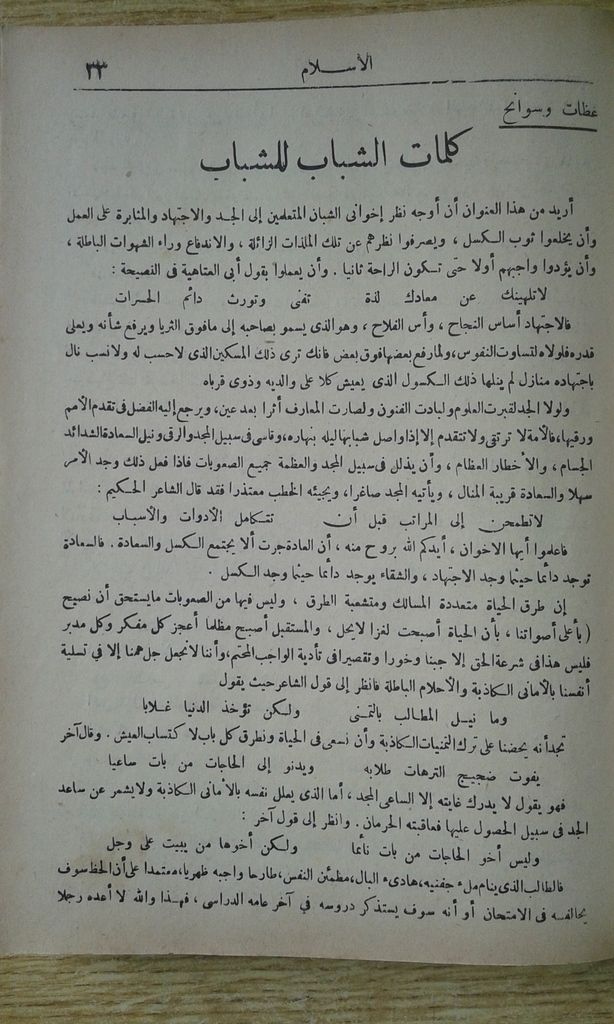 الاسلام
٣٣
عظات وسوانح
كلمات الشباب للشباب
أريد من هذا العنوان أن أوجه نظر إخوانى الشبان المتعلمين إلى الجد والاجتهاد والمثابرة على العمل
وأن يخلعوا ثوب الكسل ، ويصرفوا نظرهم عن تلك الملذات الزائلة ، والاندفاع وراء الشهوات الباطلة ،
وأن يؤدوا واجبهم أولا حتى تكون الراحة ثانيا . وأن يعملوا بقول أبى العتاهية فى النصيحة :
لا تلهينك عن معادك لذة تفنى وتورث دائم الحسرات
فالاجتهاد أساس النجاح ، وأس الفلاح ، وهو الذى يسمو بصاحبه إلى مافوق الثريا ويرفع شأنه ويعلى
قدره فلولاه لتساوت النفوس، ولما رفع بعضها فوق بعض فانك ترى ذلك المسكين الذى لاحسب له ولا نسب نال
باجتهاده منازل لم ينلها ذلك الكسول الذى يعيش كلا على والديه وذوى قرباه
ولولا الجد لقبرت العلوم ولبادت الفنون ولصارت المعارف أثرا بعد عين، ويرجع إليه الفضل فى تقدم الأمم
ورقيها، فالأمة لا ترتقى ولا تتقدم إلا إذا واصل شبابها ليله بنهاره، وقاسى فى سبيل المجد والرقى ونيل السعادة الشدائد
الجسام ، والأخطار العظام ، وأن يذلل فى سبيل المجد والعظمة جميع الصعوبات فاذا فعل ذلك وجد الأمر
سهلا والسعادة قريبة المنال ، ويأتيه المجد صاغرا، ويجيئه الخطب معتذرا فقد قال الشاعر الحكيم :
لا تطمحن إلى المراتب قبل أن تتكامل الأدوات والأسباب
فاعلموا أيها الاخوان ، أيدكم الله بروح منه ، أن العادة جرت ألا يجتمع الكسل والسعادة . فالسعادة
توجد دائما حيثما وجد الاجتهاد ، والشقاء يوجد دائما حيثما وجد الكسل .
إن طرق الحياة متعددة المسالك ومتشعبة الطرق ، وليس فيها من الصعوبات مايستحق أن نصيح
( بأعلى أصواتنا ، بأن الحياة أصبحت لغزا لايحل ، والمستقبل أصبح مظلما أعجز كل مفكر وكل مدبر
فليس هذا فى شرعة الحق إلا جبنا وخورا وتقصيرا فى تأدية الواجب المحتم، وأننا لانجعل جل همنا إلا فى تسلية
أنفسنا بالأمانى الكاذبة والأحلام الباطلة فانظر إلى قول الشاعر حيث يقول
وما نيل المطالب بالتمنى ولكن تؤخذ الدنيا غلابا
تجد أنه يحضنا على ترك التمنيات الكاذبة وأن نسعى فى الحياة ونطرق كل باب لاكتساب العيش . وقال آخر
يفوت ضجيج الترهات طلابه ويدنو إلى الحاجات من بات ساعيا
فهو يقول لا يدرك غايته إلا الساعى المجد ، أما الذى يعلل نفسه بالأمانى الكاذبة ولايشمر عن ساعد
الجد فى سبيل الحصول عليها فعاقبته الحرمان . وانظر إلى قول آخر :
وليس أخو الحاجات من بات نائما ولكن أخوها من يبيت على وجل
فالطالب الذى ينام ملء جفنيه، هادىء البال، مطمئن النفس، طارحا واجبه ظهريا، معتمدا على أن الحظ سوف
يحالفه فى الامتحان أو أنه سوف يستذكر دروسه في آخر عامه الدراسى ، فهذا والله لا أعده رجلا